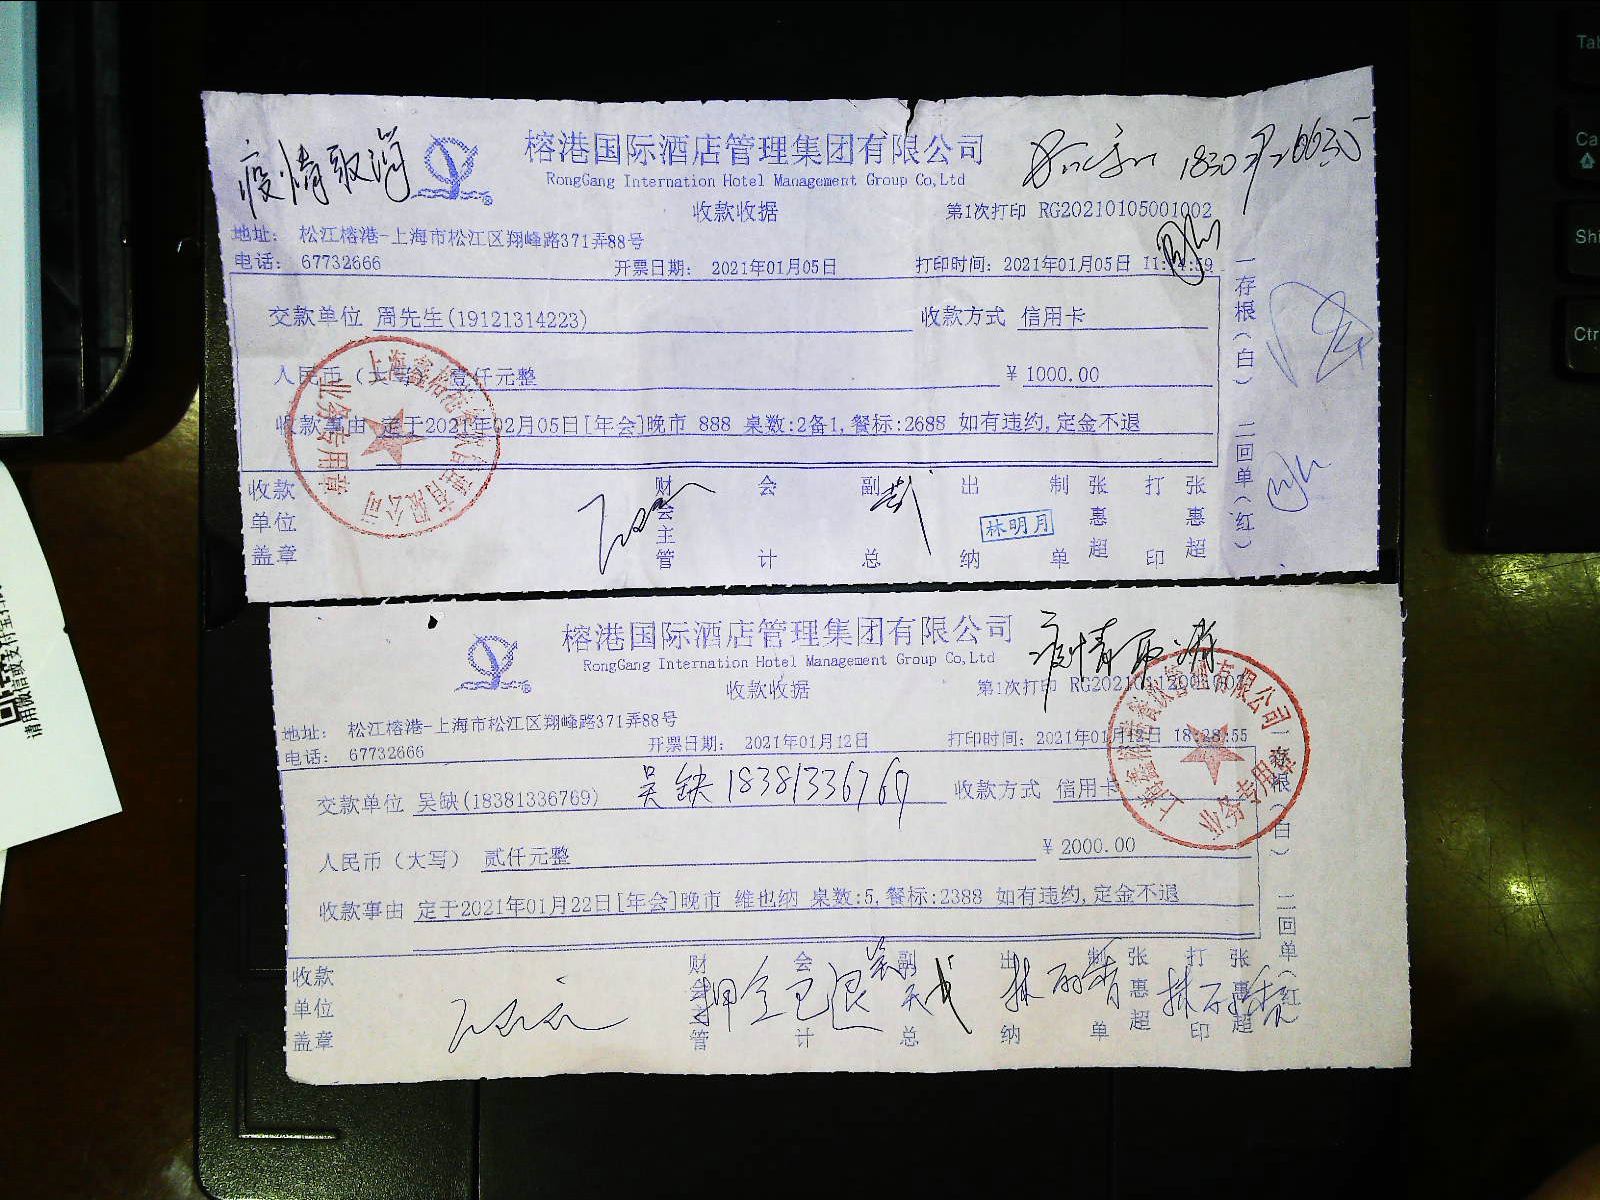 疫情取消
榕港国际酒店管理集团有限公司
RongGang Internation Hotel Management Group Co,Ltd
收款收据
第1次打印 RG20210105001002
地址: 松江榕港-上海市松江区翔峰路371弄88号
电话: 67732666
开票日期: 2021年01月05日
打印时间: 2021年01月05日
交款单位 周先生(19121314223)
收款方式 信用卡
人民币(大写) 壹仟元整
¥ 1000.00
收款事由 定于2021年02月05日[年会]晚市 888 桌数:2备1,餐标:2688 如有违约,定金不退
收款单位盖章
财会主管
会计
副总
出纳
林明月
制单
张惠超
打印
张惠超
一存根(白) 二回单(红)
业务专用章
榕港国际酒店管理集团有限公司
RongGang Internation Hotel Management Group Co,Ltd
疫情取消
收款收据
第1次打印
地址: 松江榕港-上海市松江区翔峰路371弄88号
电话: 67732666
开票日期: 2021年01月12日
打印时间: 2021年01月12日 18:28:55
交款单位 吴缺(18381336769) 吴缺 18381336769
收款方式 信用卡
人民币(大写) 贰仟元整
¥ 2000.00
收款事由 定于2021年01月22日[年会]晚市 维也纳 桌数:5,餐标:2388 如有违约,定金不退
收款单位盖章
财会主管
会计
押金已退
副总
出纳
制单
张惠超
打印
张惠超
一存根(白) 二回单(红)
业务专用章
Tab
Shi
Ctr